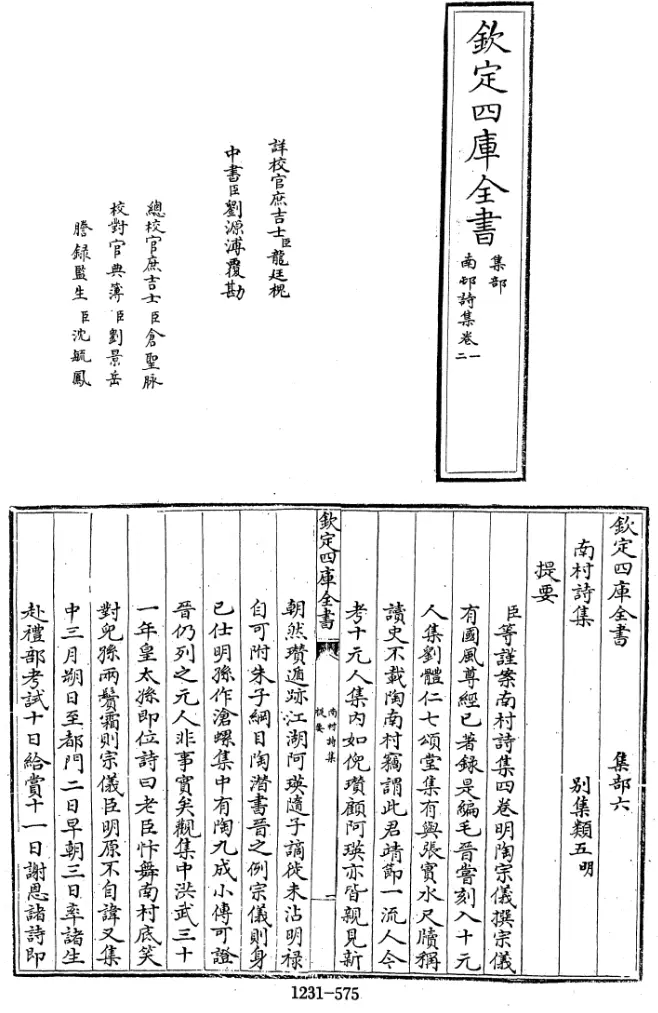 欽定四庫全書
集部
南邨詩集卷一
二
詳校官庶吉士臣龍廷槐
中書臣劉源溥覆勘
總校官庶吉士臣倉聖脉
校對官典簿臣劉景岳
謄録監生臣沈毓鳳
欽定四庫全書 集部六
南村詩集 别集類五 明
提要
臣等謹案南村詩集四卷明陶宗儀撰宗儀
有國風尊經已著録是編毛晉嘗刻入十元
人集劉體仁七頌堂集有與張實水尺牘稱
讀史不載陶南村竊謂此君靖節一流人今
考十元人集内如倪瓚顧阿瑛亦皆親見新
欽定四庫全書
南村詩集
提要
一
朝然瓚遁跡江湖阿瑛隨子謫徙未沾明禄
自可附朱子綱目陶潛書晉之例宗儀則身
已仕明孫作滄螺集中有陶九成小傳可證
晉仍列之元人非事實矣觀集中洪武三十
一年皇太孫即位詩曰老臣忭舞南村底笑
對兒孫兩鬢霜則宗儀臣明原不自諱又集
中三月朔日至都門二日早朝三日率諸生
赴禮部考試十日給賞十一日謝恩諸詩即
1231-575